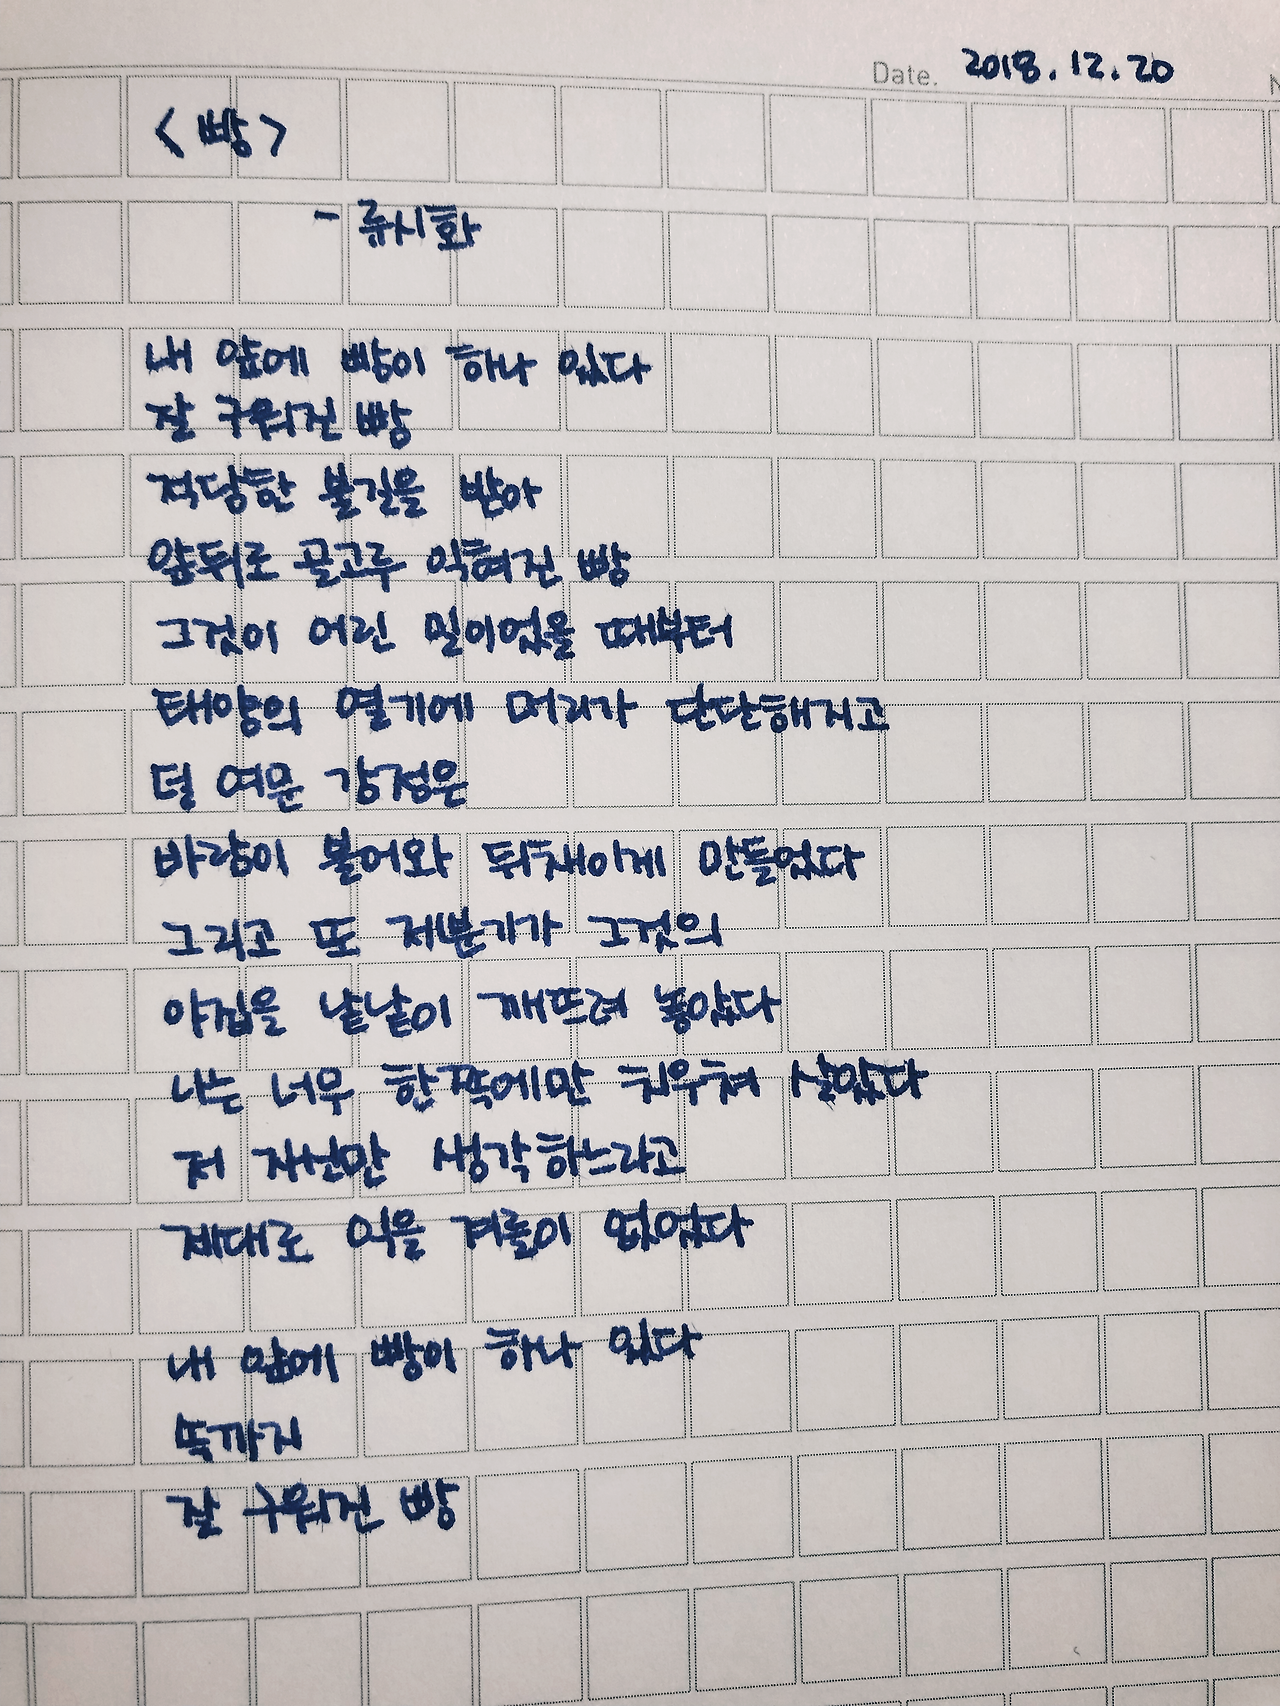 Date. 2018.12.20
<빵>
- 류시화
내 앞에 빵이 하나 있다
잘 구워진 빵
적당한 불길을 받아
앞뒤로 골고루 익혀진 빵
그것이 어린 밀이었을 때부터
태양의 열기에 머리가 단단해지고
덜 여문 감정은
바람이 불어와 뒤채이게 만들었다
그리고 또 제분기가 그것의
아집을 낱낱이 깨뜨려 놓았다
나는 너무 한쪽에만 치우쳐 살았다
저 자신만 생각하느라고
제대로 익을 겨를이 없었다
내 앞에 빵이 하나 있다
속까지
잘 구워진 빵